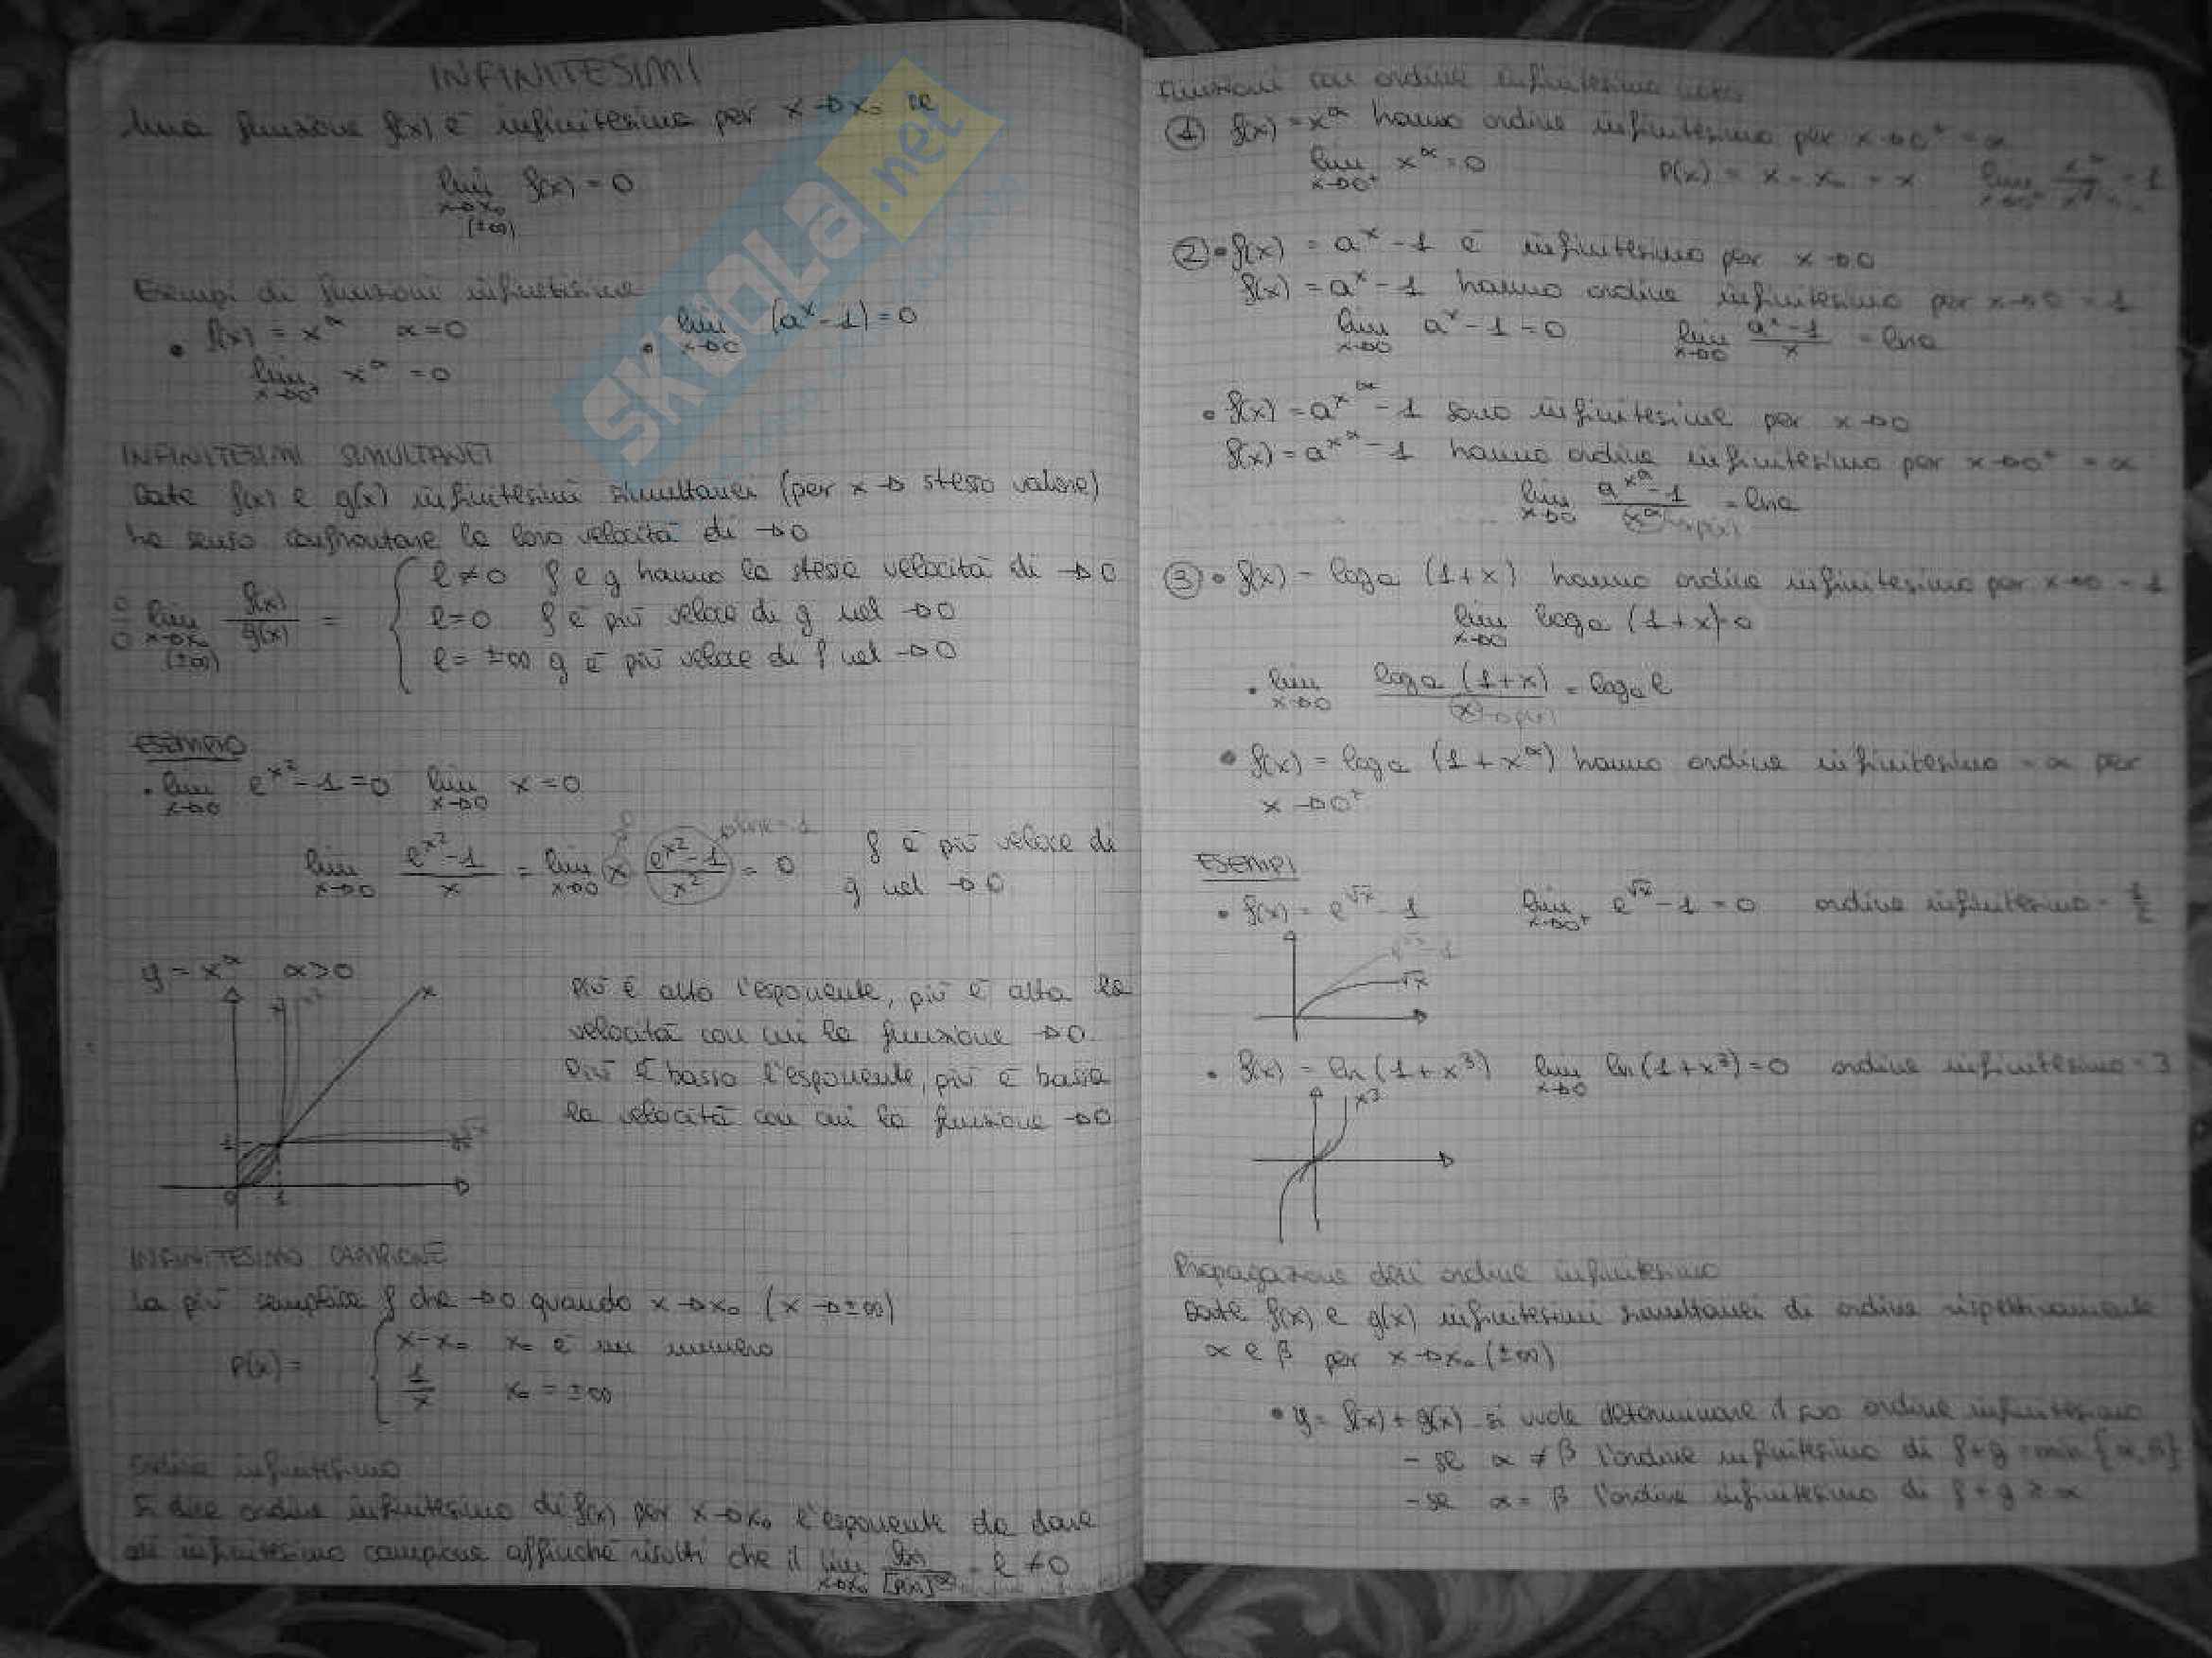 INFINITESIMI
Una funzione f(x) è infinitesima per x→x₀ se
lim f(x) = 0
x→x₀
(±∞)
Esempi di funzioni infinitesime
• f(x) = x^α α=0
lim x^α = 0
x→0⁺
• lim (a^x - 1) = 0
x→0
INFINITESIMI SIMULTANEI
Date f(x) e g(x) infinitesimi simultanei (per x→ stesso valore)
ha senso confrontare la loro velocità di →0
0/0 lim f(x)/g(x) =
x→x₀
(±∞)
l≠0 f e g hanno la stessa velocità di →0
l=0 f è più veloce di g nel →0
l=±∞ g è più veloce di f nel →0
ESEMPIO
• lim e^x² - 1 = 0 lim x = 0
x→0 x→0
lim (e^x² - 1)/x = lim x (e^x² - 1)/x² = 0 f è più veloce di
x→0 x→0 g nel →0
y = x^α α>0
x
√x
1
0 1
Più è alto l'esponente, più è alta la
velocità con cui la funzione →0
Più è basso l'esponente, più è bassa
la velocità con cui la funzione →0
INFINITESIMO CAMPIONE
La più semplice f che →0 quando x→x₀ (x→±∞)
P(x) =
x-x₀ x₀ è un numero
1/x x₀ = ±∞
Ordine infinitesimo
Si dice ordine infinitesimo di f(x) per x→x₀ l'esponente da dare
all'infinitesimo campione affinché risulti che il lim f(x)/[p(x)]^α = l ≠ 0
x→x₀
SKUOLA.net
Funzioni con ordine infinitesimo noto
① f(x) = x^α hanno ordine infinitesimo per x→0⁺ = α
lim x^α = 0 P(x) = x - x₀ = x lim x^α/x^α = 1
x→0⁺ x→0⁺
② • f(x) = a^x - 1 è infinitesimo per x→0
f(x) = a^x - 1 hanno ordine infinitesimo per x→0 = 1
lim a^x - 1 = 0 lim (a^x - 1)/x = lna
x→0 x→0
• f(x) = a^x^α - 1 sono infinitesime per x→0
f(x) = a^x^α - 1 hanno ordine infinitesimo per x→0⁺ = α
lim (a^x^α - 1)/x^α = lna
x→0 →p(x)
③ • f(x) = log a (1+x) hanno ordine infinitesimo per x→0 = 1
lim log a (1+x) = 0
x→0
• lim log a (1+x)/x = log a e
x→0 →p(x)
• f(x) = log a (1+x^α) hanno ordine infinitesimo = α per
x→0⁺
ESEMPI
• f(x) = e^√x - 1 lim e^√x - 1 = 0 ordine infinitesimo = 1/2
x→0⁺
e^√x - 1
√x
• f(x) = ln(1+x³) lim ln(1+x³) = 0 ordine infinitesimo = 3
x→0
x³
Propagazione dell'ordine infinitesimo
Date f(x) e g(x) infinitesimi simultanei di ordine rispettivamente
α e β per x→x₀ (±∞)
• y = f(x) + g(x) si vuole determinare il suo ordine infinitesimo
- se α ≠ β l'ordine infinitesimo di f+g = min {α, β}
- se α = β l'ordine infinitesimo di f+g ≥ α